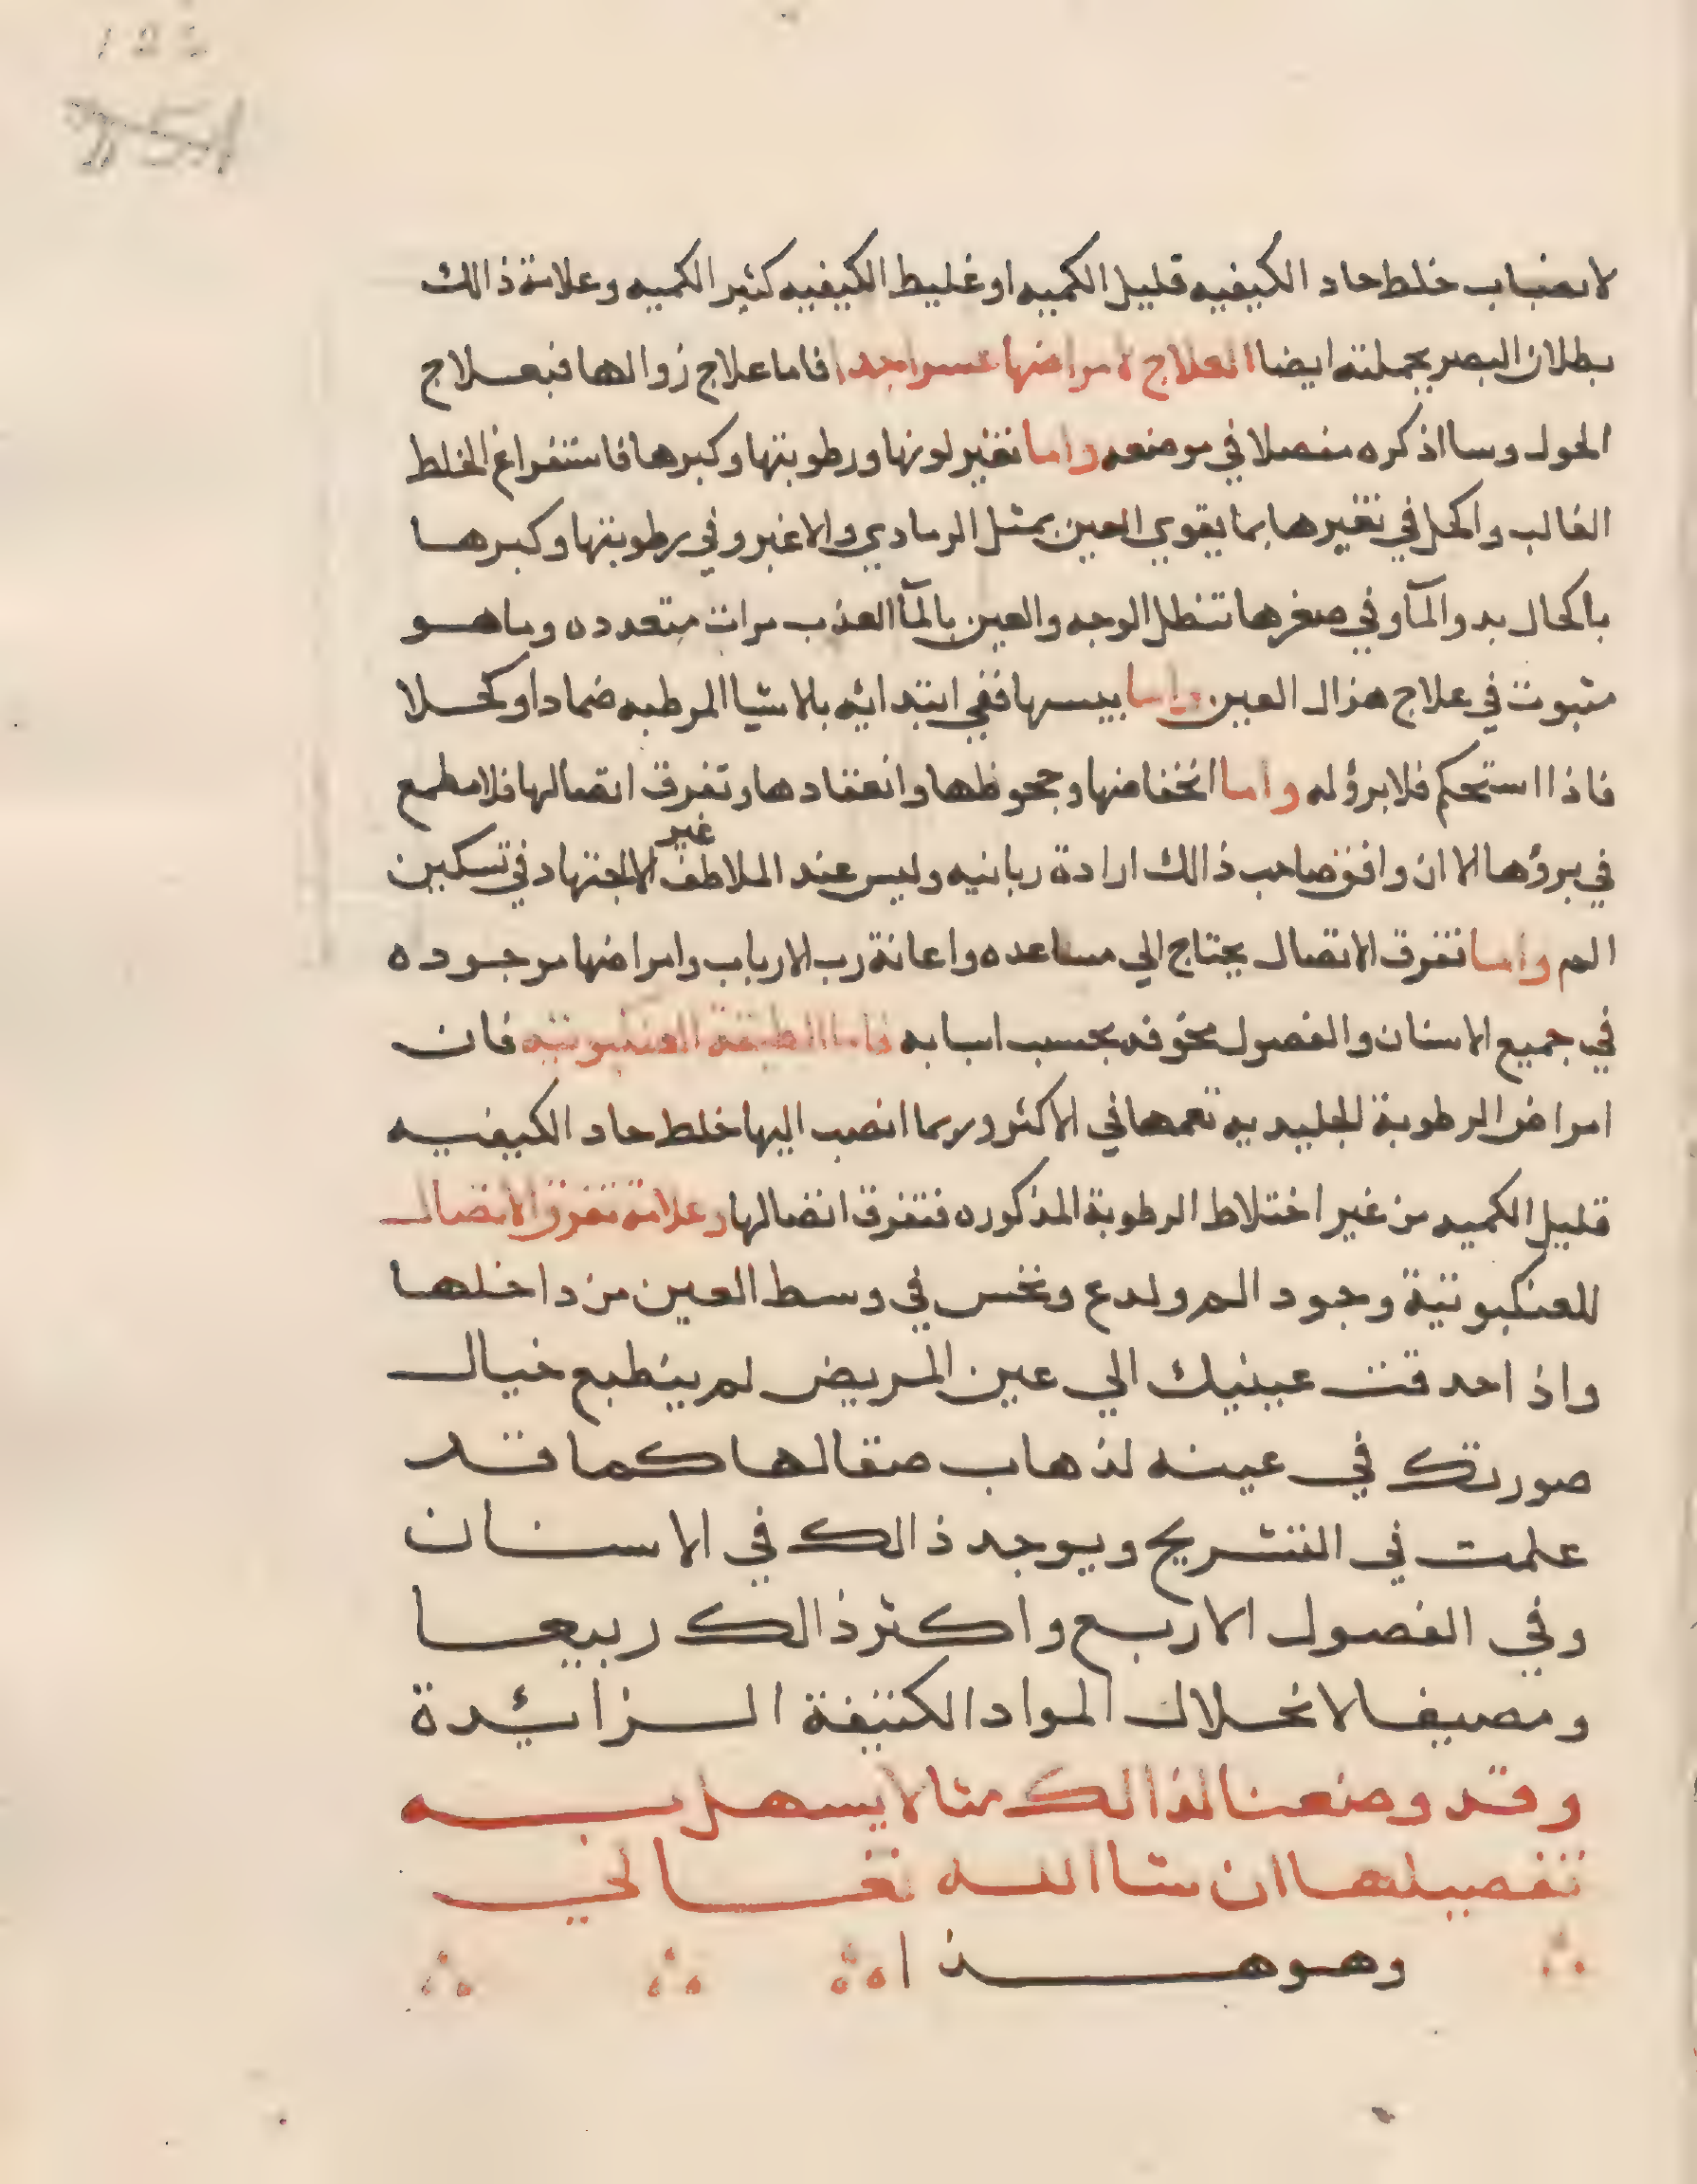 لانصباب خلط حاد الكيفيه قليل الكميه او غليظ الكيفيه كثير الكميه وعلامة ذالك
بطلان البصر بجملته ايضا العلاج لامراضها عسر اجدا فاما علاج زوالها فبعلاج
الحول وسا اذكره مفصلا في موضعه واما تغير لونها ورطوبتها وكبرها فاستفراغ الخلط
الغالب والكحل في تغيرها بما يقوي العين بمثل الرمادي والاغبر وفي رطوبتها وكبرها
بالكحال بد والمآ وفي صغرها تنطل الوجه والعين بالمآ العذب مرات متعدده وما هو
مثبوت في علاج هزال العين واما يبسها ففي ابتدائه بالاشيا المرطبه ضمادا وكحلا
فاذا استحكم فلا برؤ له واما انخفاضها وجحوظها وانعقادها وتفرق اتصالها فلا مطمع
في برؤها الا ان وافق صاحب ذالك ارادة ربانيه وليس عند الملاطف غير الاجتهاد في تسكين
الم واما تفرق الاتصال يحتاج الي مساعده واعانة رب الارباب وامراضها موجوده
في جميع الاسنان والفصول مخوفه بحسب اسبابه فاما الطبقة العنكبوتيه فان
امراض الرطوبة الجليديه تعمها في الاكثر وربما انصب اليها خلط حاد الكيفيه
قليل الكميه من غير اختلاط الرطوبة المذكوره فتفرق اتصالها وعلامة تفرق الاتصال
للعنكبوتية وجود الم ولدع ونخس في وسط العين من داخلها
واذ احدقت عينيك الي عين المريض لم ينطبع خيال
صورتك في عينه لذهاب صقالها كما قد
علمت في التشريح ويوجد ذالك في الاسنان
وفي الفصول الاربع واكثر ذالك ربيعا
ومصيفا لانحلال المواد الكثيفة الزائدة
وقد وضعنا لذالك مثالا يسهل به
تفصيلها ان شا الله تعالي
وهو هذا